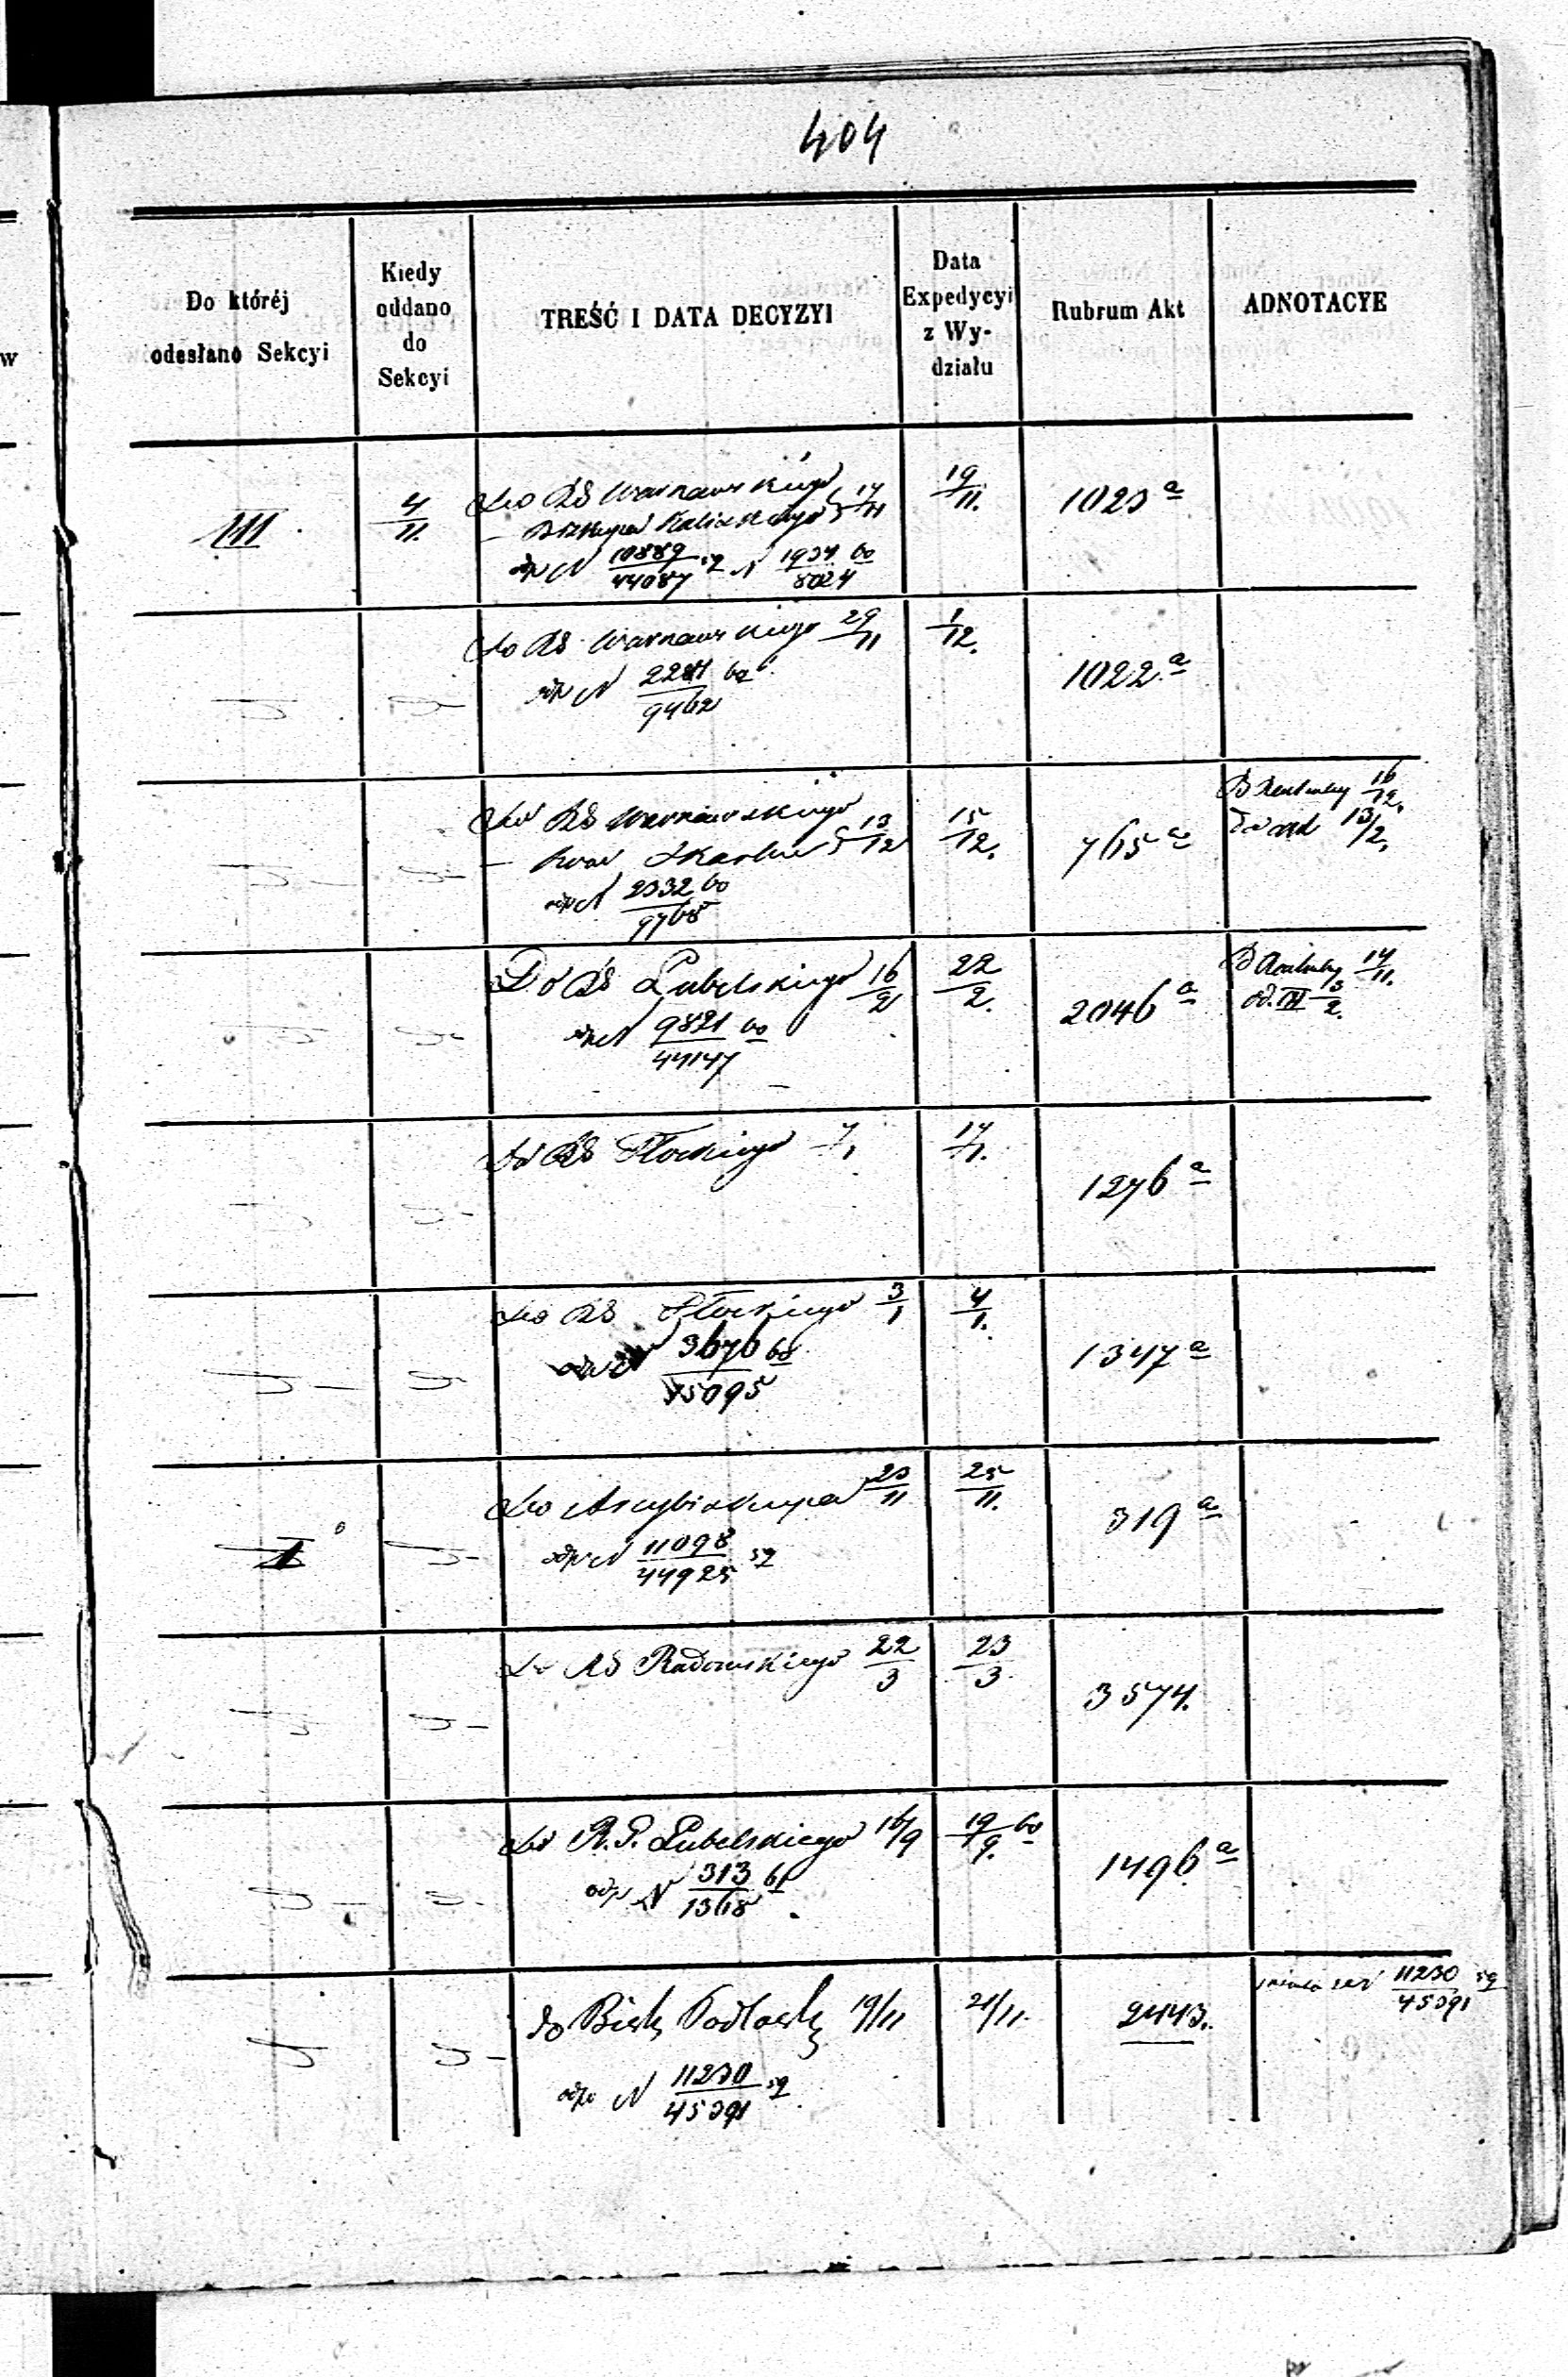 404
Do któréj odesłano Sekcyi
Kiedy oddano do Sekcyi
TREŚĆ I DATA DECYZYI
Data Expedycyi z Wydziału
Rubrum Akt
ADNOTACYE
III
4/11.
Do RG Warszawskiego
– Biskupa Kaliskiego 17/11
odp N 10889/44087 59 N 1934/8024 60
19/11.
1023 a
Do RG Warszawskiego 29/11
odp N 9462
1/12.
1022 a
Do RG Warszawskiego
– Skarbu 13/12
odp N 2332/9768 60
15/12.
765 a
16/12.
13/2.
Do RG Lubelskiego 16/2
odp N 9821/44147 60
22/2.
2046 a
17/11.
od. III 3/2.
Do RG Płockiego 7/1
17/1.
1276 a
Do RG Płockiego 3/1
3676/15095 60
4/1.
1347 a
I
Do Arcybiskupa 23/11
odp N 11098/44925 59
25/11.
319 a
Do RG Radomskiego 22/3
23/3.
3574.
Do R. G. Lubelskiego 16/9
odp N 313/1368 61
19/9. 60
1496 a
do Bisk Podlask 19/11
odp N 11230/45391 59
21/11.
2443.
11230/45391 59